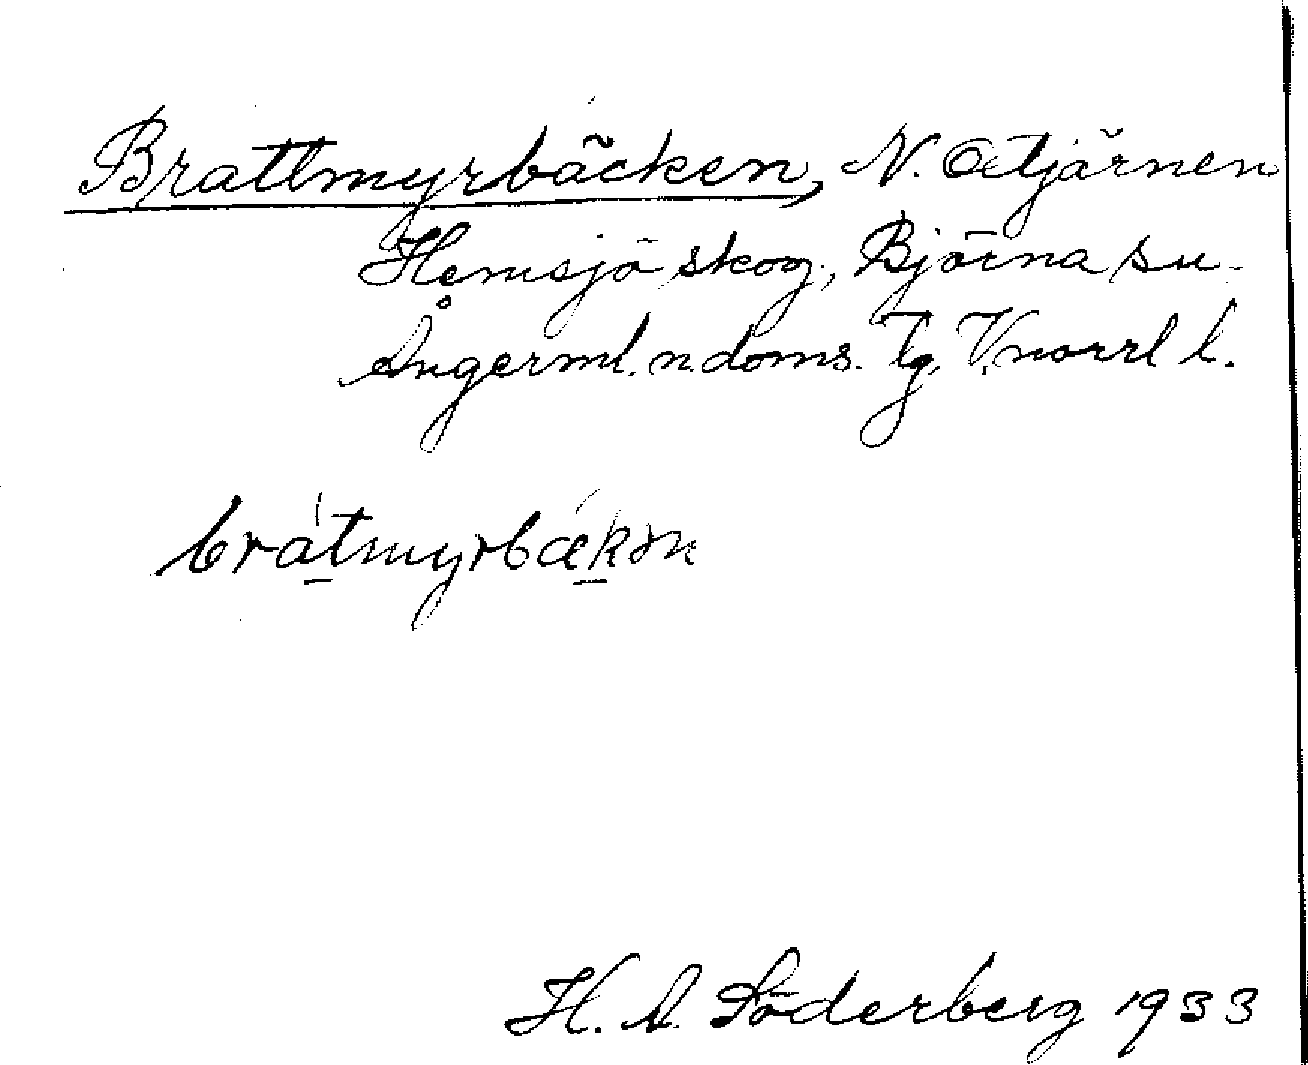 Brattmyrbäcken, N. Otjärnen
Hemsjö skog, Björna sn.
Ångerml. n. doms. Tg, V.norrl l.
bratmyrbækən
H. A. Söderberg 1933